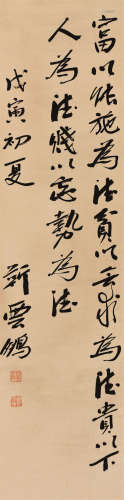 富以能施為德貧以無求為德貴以下
人為德賤以忘勢為德
戊寅初夏
靳雲鵬